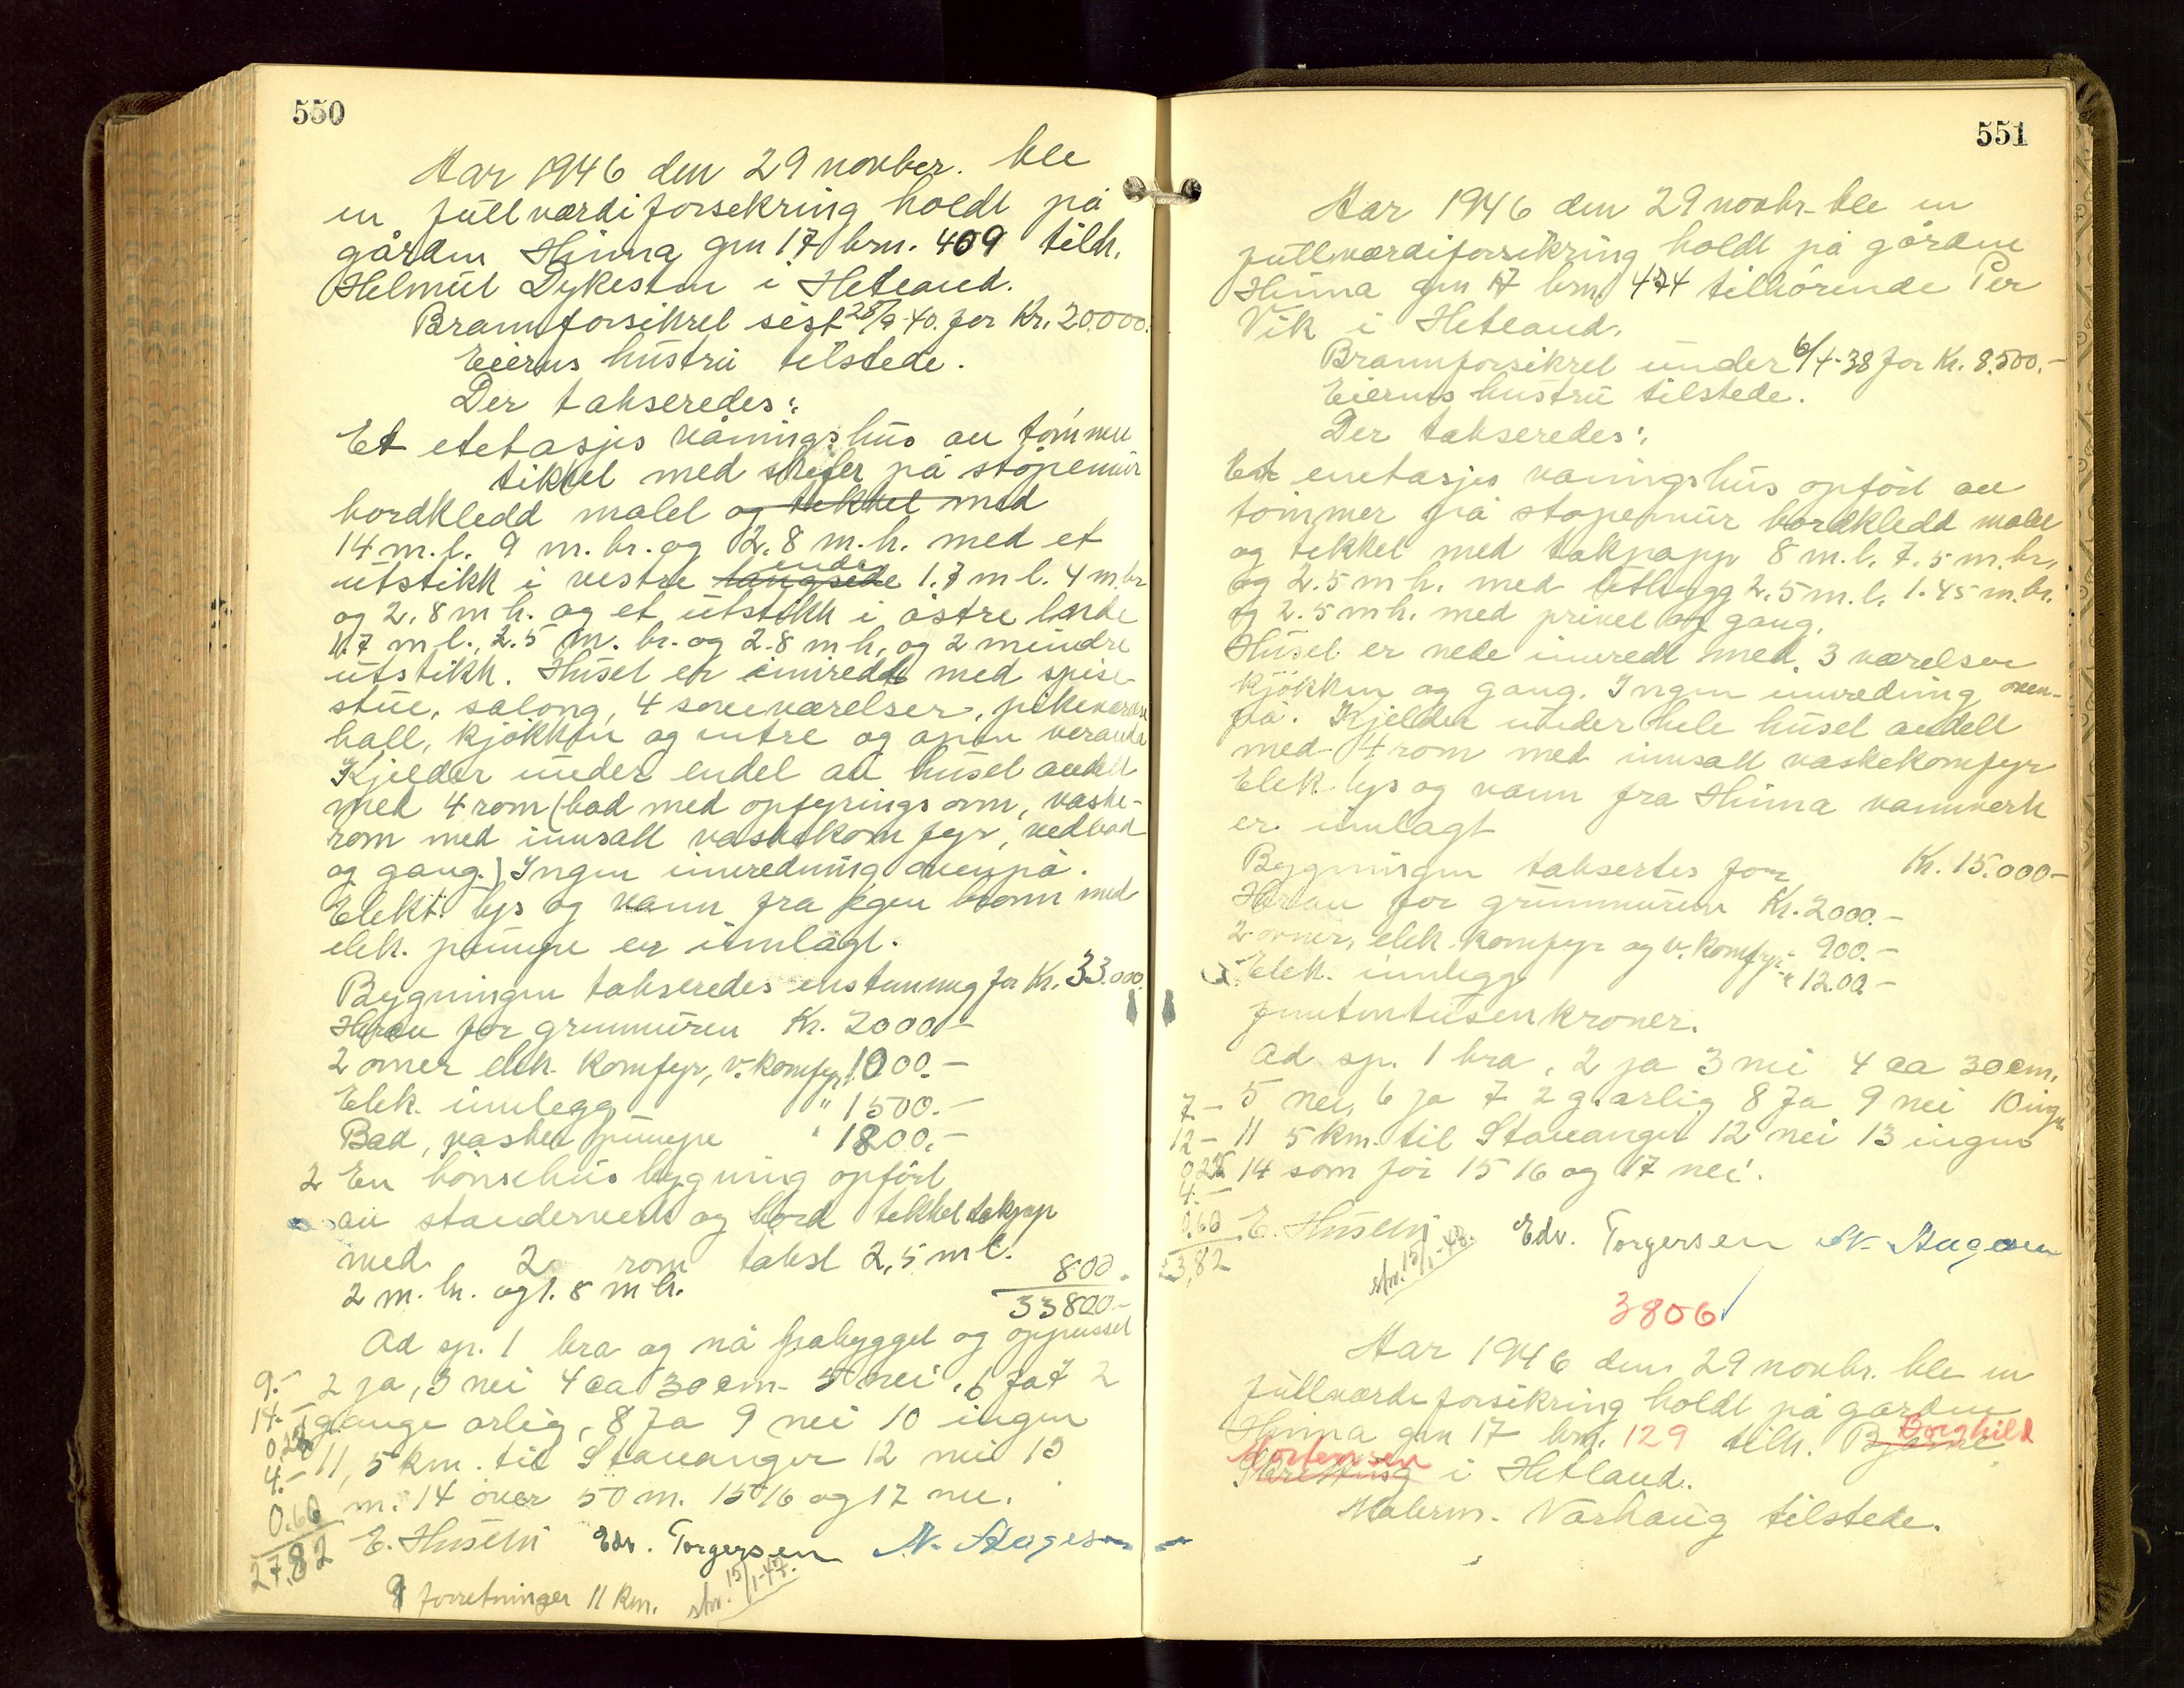 550
Aar 1946 den 29 novber. ble
en fullværdiforsekring holdt på
gården Hinna gnn 17 brn. 409 tilh.
Helmut Dykesten i Hetland.
Brannforsikret sist 28/9-40. for Kr. 20.000.
Eierens hustru tilstede.
Der takseredes:
Et etetasjes våningshus au tømmer
tikket med skifer på støpemur
bordkledd malet og tekket med
14 m.l. 9 m. br. og 2.8 m.h. med et
utstikk i vestre langsede ende 1.7 m l. 4 m. br
og 2.8 m h. og et utstikk i østre ende
1.7 m l., 2.5 m. br. og 2.8 m h, og 2 mindre
utstikk. Huset er innredt med spise-
stue, salong, 4 soveværelser, pikeværelse
hall, kjøkken og entre og åpen veranda
Kjelder under endel au huset audelt
med 4 rom (bad med opfyringsovn, vaske-
rom med innsatt vaskekomfyr, vedbod
og gang.) Ingen innredning ovenpå.
Elekt. lys og vann fra egen brønn med
elek. pumpe er innlagt.
Bygningen takseredes enstemmig for Kr. 33.000.
Herau for grunnmuren Kr. 2000.-
2 ovner elek. komfyr, v. komfyr 1000.-
Elek. innlegg " 1500.-
Bad, vask, pumpe " 1800.-
2 En hønsehus bygning opført
au standerverk og bord tekket takpap
med 2 rom takst 2,5 m l.
2 m. br. og 1.8 m h. 800.
33800.-
Ad sp. 1 bra og nå påbygget og oppusset
9.- 2 ja, 3 nei 4 ca 30 cm. 5 nei, 6 Ja 7 2
14.- gange årlig, 8 Ja 9 nei 10 ingen
0,22
4.- 11, 5 km. til Stavanger 12 nei 13
0.60 m. 14 over 50 m. 15 16 og 17 nei.
27,82 E. Husebø Edv. Torgersen N. Stageson
8 forretninger 11 km. skr. 15/1-47.
551
Aar 1946 den 29 novbr. ble en
fullværdiforsikring holdt på gården
Hinna gnn 17 brn 474 tilhørende Per
Vik i Hetland.
Brannforsikret under 6/4-38 for Kr. 8.500.-
Eierens hustru tilstede.
Der takseredes:
Et enetasjes vaningshus opført au
tømmer på støpemur bordkledd malet
og tekket med takpapp 8 m.l. 7.5 m. br,
og 2.5 m h. med utbygg 2.5 m. l. 1.45 m. br.
og 2.5 m h. med privet og gang.
Huset er nede innredt med 3 værelser
kjøkken og gang. Ingen innredning oven-
på. Kjelder under hele huset audelt
med 4 rom med innsatt vaskekomfyr
Elek lys og vann fra Hinna vannverk
er innlagt
Bygningen taksertes for Kr. 15.000-
Herau for grunnmuren Kr. 2000.-
2 ovner, elek. komfyr og v. komfyr " 900.-
Elek. innlegg " 1200.-
femtentusenkroner.
Ad sp. 1 bra, 2 ja 3 nei 4 ca 30 cm.
7- 5 nei, 6 ja 7 2 g. årlig 8 Ja 9 nei 10 ingen
12- 11 5 km. til Stavanger 12 nei 13 ingen
0,22 14 som før 15 16 og 17 nei.
4.-
0.60 E. Husebø Edv. Torgersen N. Stageson
23,82 skr. 15/1-48.
3806
Aar 1946 den 29 novbr. ble en
fullværdeforsikring holdt på gården
Hinna gnn 17 brn. 129 tilh. Bjarne Borghild
Mortensen i Hetland.
Malerm. Varhaug tilstede.